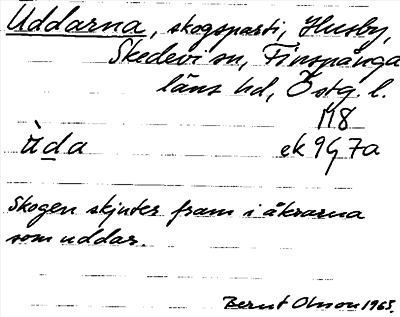 Uddarna, skogsparti, Husby,
Skedevi sn, Finspånga
läns hd, Östg. l.
118
ùda ek 9G 7a
Skogen skjuter fram i åkrarna
som uddar.
Bernt Olsson 1965.